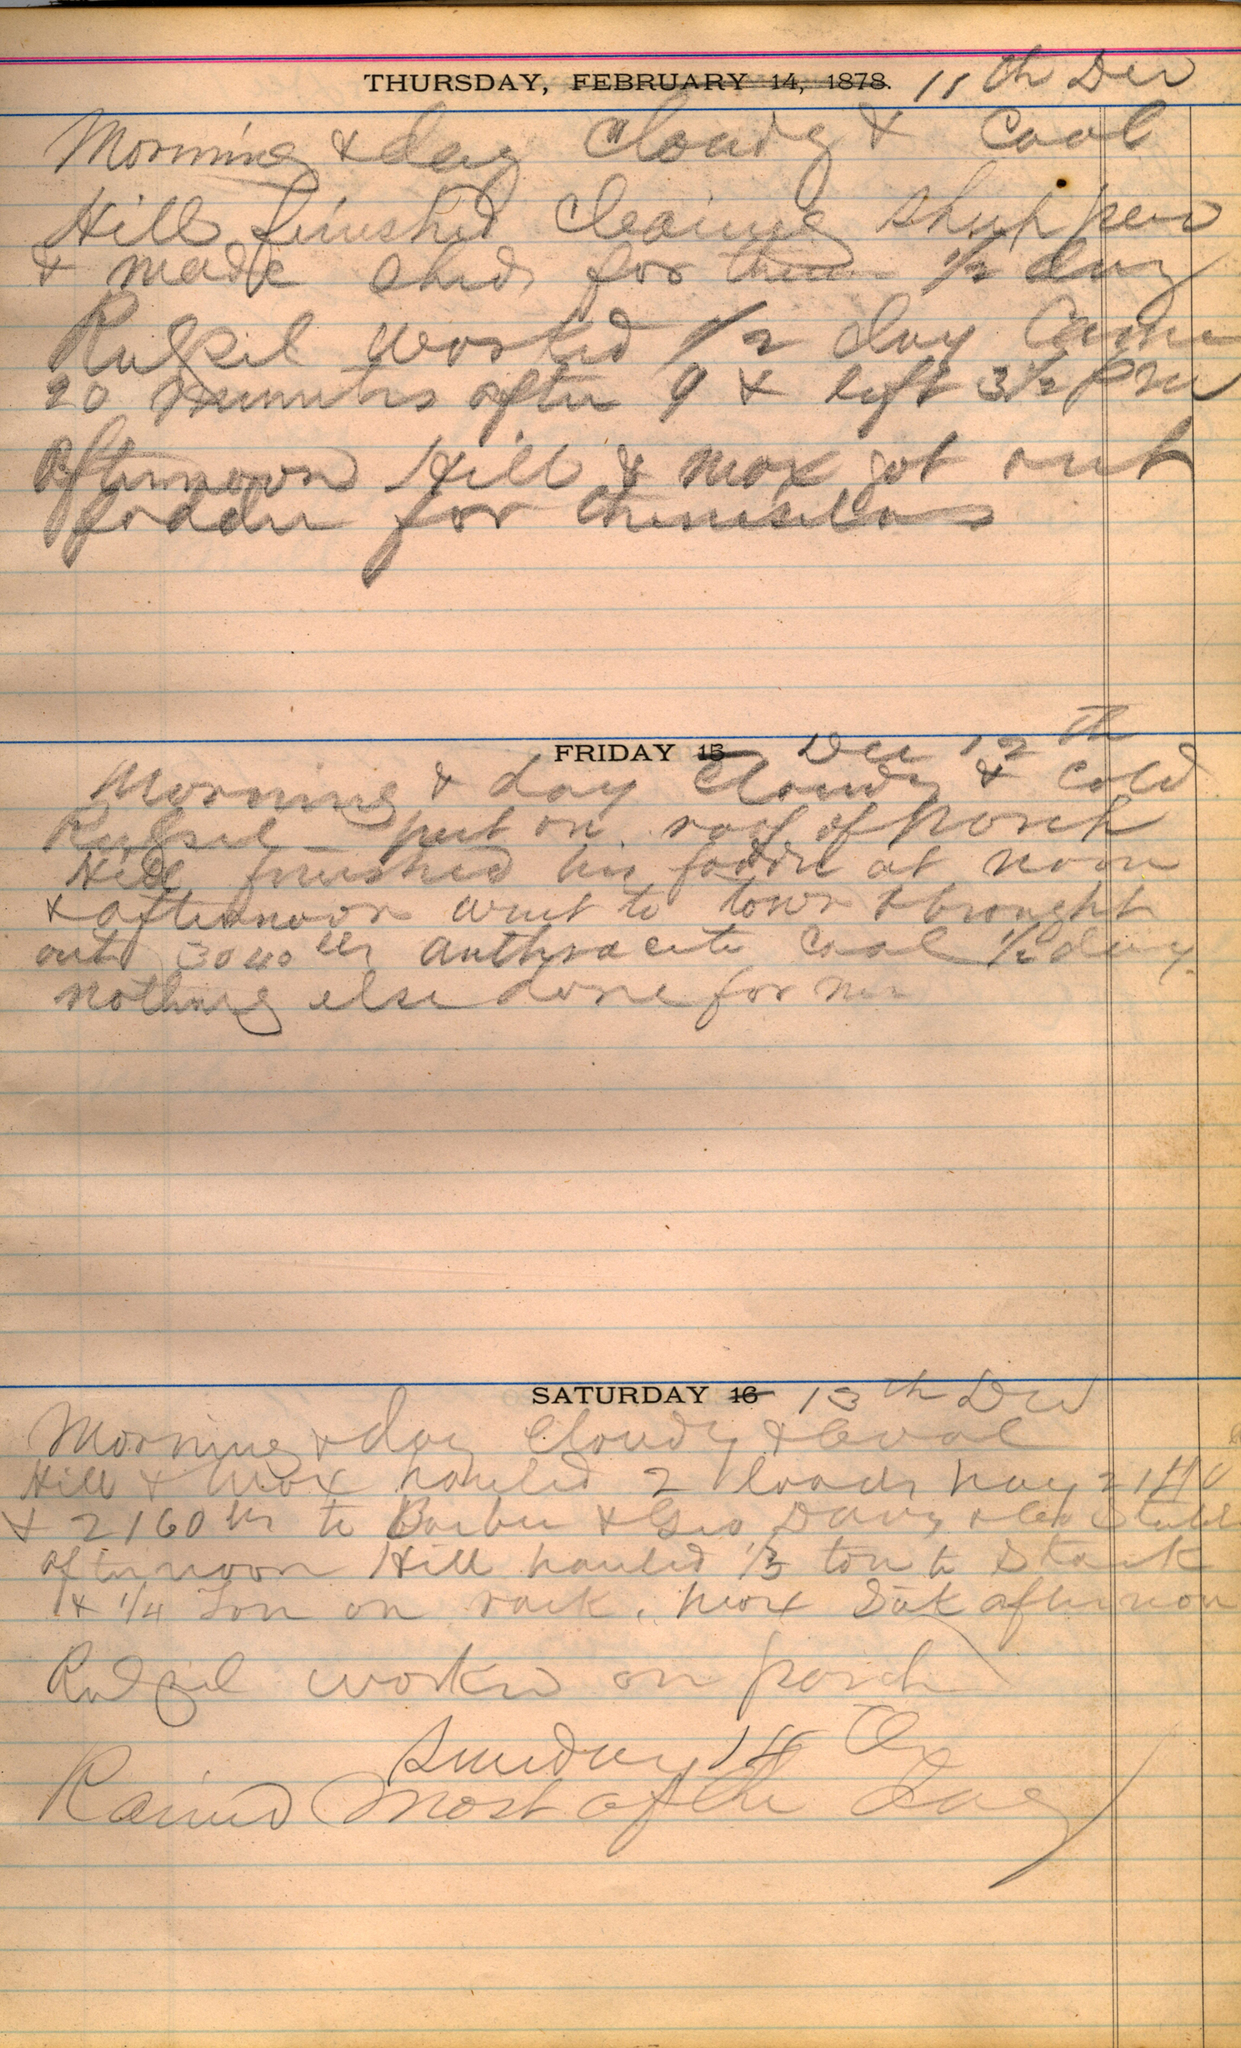 THURSDAY, FEBRUARY 14, 1878. 11th Dec
Morning & day Cloudy & Cool
Hill finished cleaning sheep pen
& made sheds for them 1/2 day
worked 1/2 day Came
20 minutes after 9 & left 3 1/2 PM
afternoon Hill & Max got out
fodder for themselves
FRIDAY 15 Dec 12th
Morning & day Cloudy & Cold
put on roof of Porch
Hill finished his fodder at noon
& afternoon went to town & brought
out 3040 lbs anthracite Coal 1/2 day.
Nothing else done for me
SATURDAY 16 13th Dec
Morning & day Cloudy & Cool
Hill & Max hauled 2 loads hay
& 2160 lbs to Barber & Geo Davy
afternoon Hill hauled 1/3 ton to Stack
& 1/4 Ton on rack. Max afternoon
worked on porch
Sunday 14th
Rained most of the day